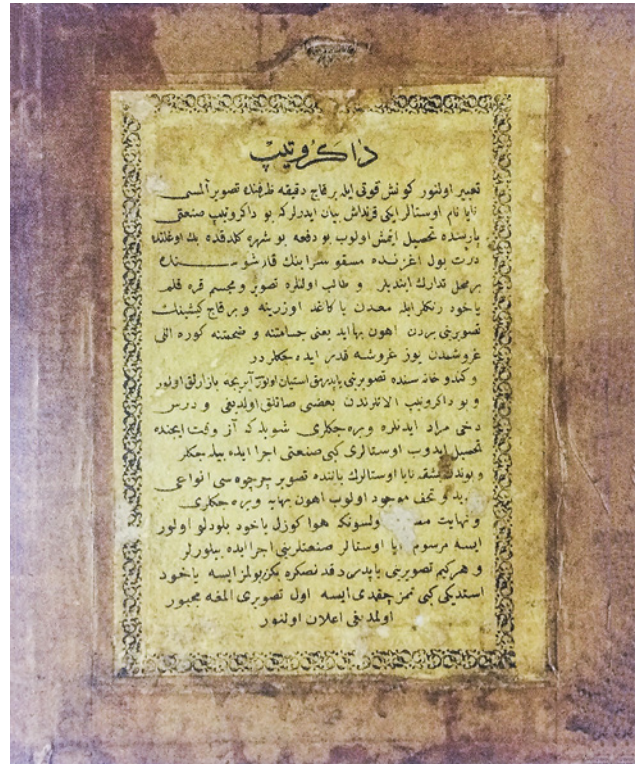 داكروتیپ
تعبیر اولنور كونش قوتی ایله بر قاچ دقیقه ظرفنده تصویر آلمسی
نایا نام اوستالر ایكی قرنداش بیان ایدرلركه بو داكروتیپ صنعتی
پاریسده تحصیل ایتمش اولوب بو دفعه بو شهره كلدكده بك اوغلنده
درت یول اغزنده مسقو سراینك قارشوسنده
بر محل تدارك ایتدیلر و طالب اولنلره تصویر و مجسم قره قلم
یاخود رنكلر ایله معدن یا كاغد اوزرینه و بر قاچ كیشینك
تصویرینی بردن اهون بهاید یعنی جسامتنه و ضخمتنه كوره التی
غروشدن یوز غروشه قدر ایده جكلر در
و كندو خانه سنده تصویرینی یاپدیرمق استیان اولور آیریجه بازارلق اولور
و بو داكروتیپ الاتلرندن بعضی صاتلق اولدیغی و درس
دخی مراد ایدنلره ویره جكلری شویله كه آز وقت ایچنده
تحصیل ایدوب اوستالری كبی صنعتی اجرا ایده بیله جكلر
و بوندن بشقه نایا اوستالرك یاننده تصویر چرچوه سی انواعی
و تحف موجود اولوب اهون بهایه ویره جكلری
و نهایت اولسونكه هوا كوزل یاخود بلودلو اولور
ایسه مرسوم نایا اوستالر صنعتلرینی اجرا ایده بیلورلر
و هر كیم تصویرینی یاپدیردقدنصكره بكزیولمز ایسه یاخود
استدیكی كبی چقمدی ایسه اول تصویری المغه مجبور
اولمدیغی اعلان اولنور